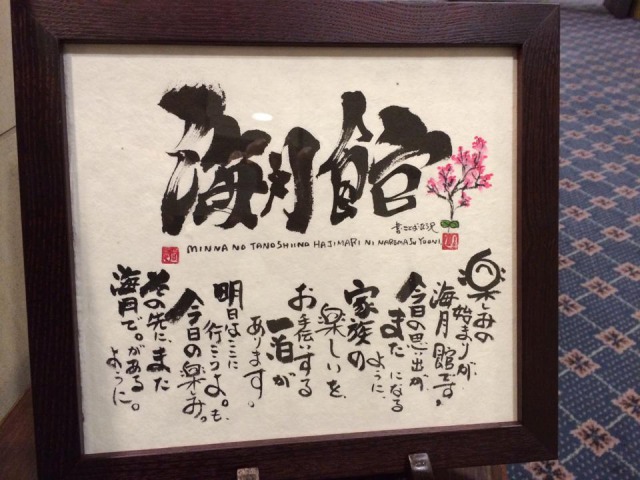 海月館
MINNA NO TANOSHIINO HAJIMARI NI NAREMASU YOONI
楽しみの
始まりが、
海月館です。
今日の思い出が、
またになる
ように、
家族の
楽しいを、
お手伝いする
一泊が
あります。
明日はここに
行こうよ。も、
今日の楽しみ。
その先に、また
海月で。がある。
ように。